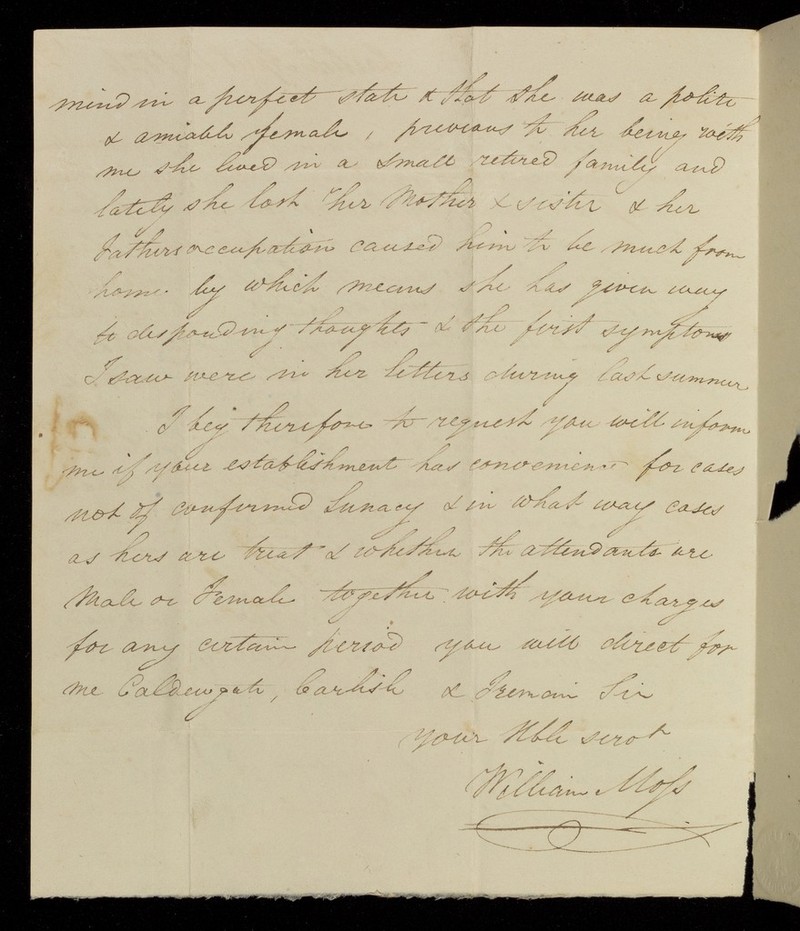 mind in a perfect state & that she was a polite
& amiable female, previous to her being with
me she lived in a small retired family and
lately she lost her Mother & sister & her
Fathers occupation caused him to be much from
home. by which means she has given way
to desponding thoughts & the first symptoms
I saw were in her letters during last summer
I beg therefore to request you will inform
me if your establishment has convenience for cases
not of confirmed Lunacy & in what way cases
as hers are treatd & whether the attendants are
Male or Female together with your charges
for any certain period you will direct for
me Caldewgate, Carlisle & I remain Sir
your Hble servt
William Moss